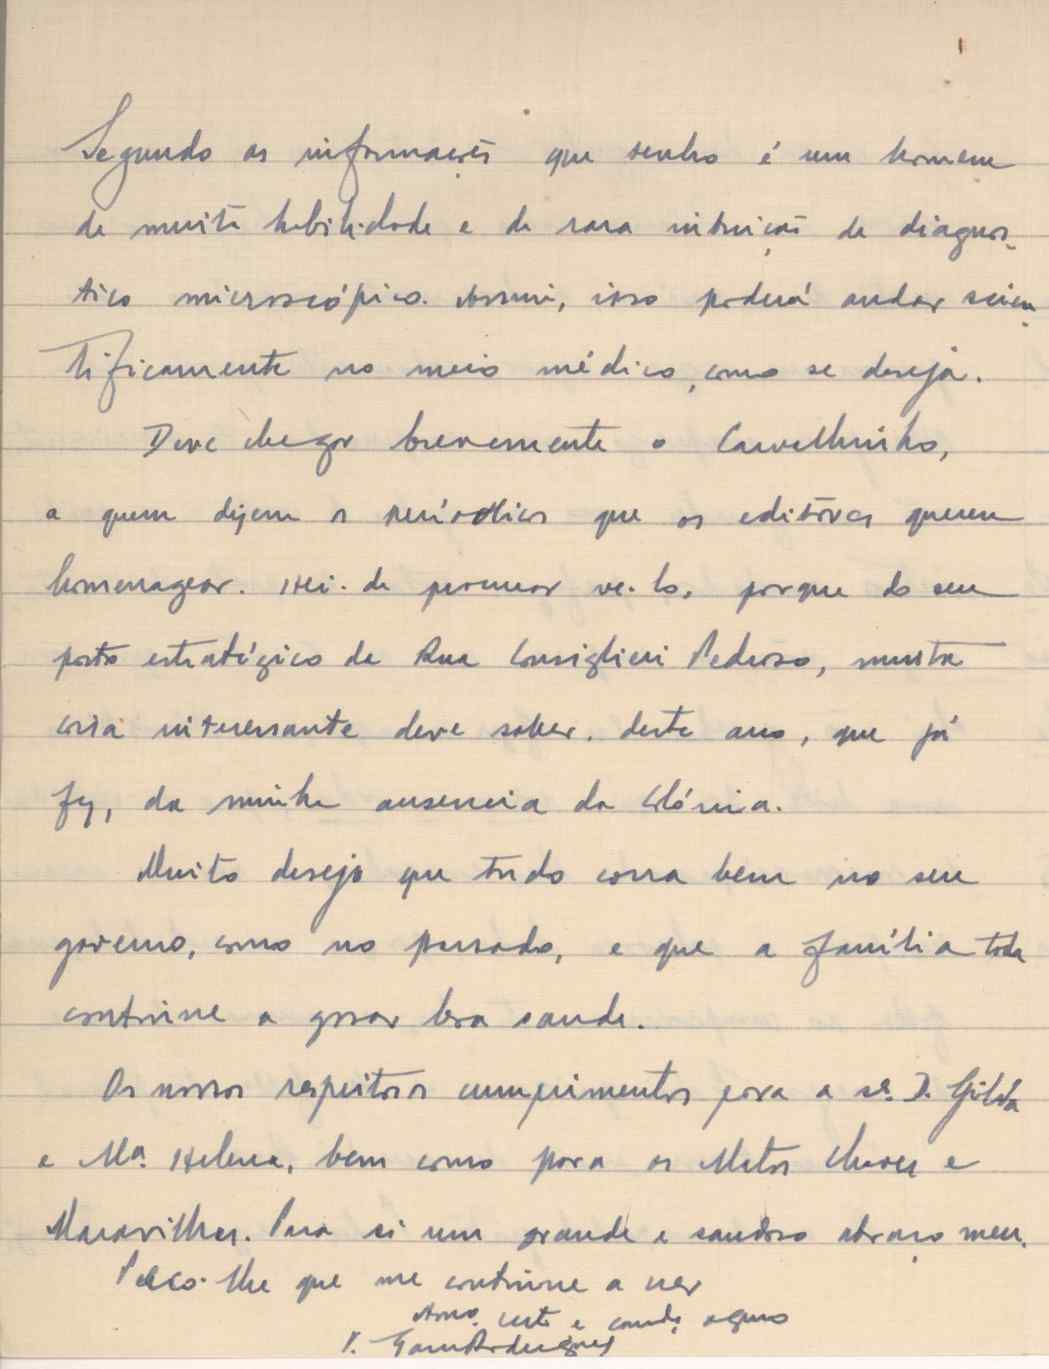 Segundo as informações que tenho é um homem
de muita habilidade e de rara intuição de diagnos-
tico microscópico. Assim, isso poderá andar scien-
tificamente no meio médico, como se deseja.
Deve chegar brevemente o Carvalhinho,
a quem dizem os periódicos que os editôres querem
homenagear. Hei-de procurar ve-lo, porque do seu
posto estratégico da Rua Consiglieri Pedroso, muita
coisa interessante deve saber, deste ano, que já
fez, da minha ausencia da Colónia.
Muito desejo que tudo corra bem no seu
governo, como no passado, e que a família toda
continue a gosar boa saude.
Os nossos respeitosos cumprimentos para a sr.ª D. Gilda
e M.ª Helena, bem como para os Matos Chaves e
Maravilhas. Para si um grande e saudoso abraço meu.
Peço-lhe que me continue a ver
Am.º certo e